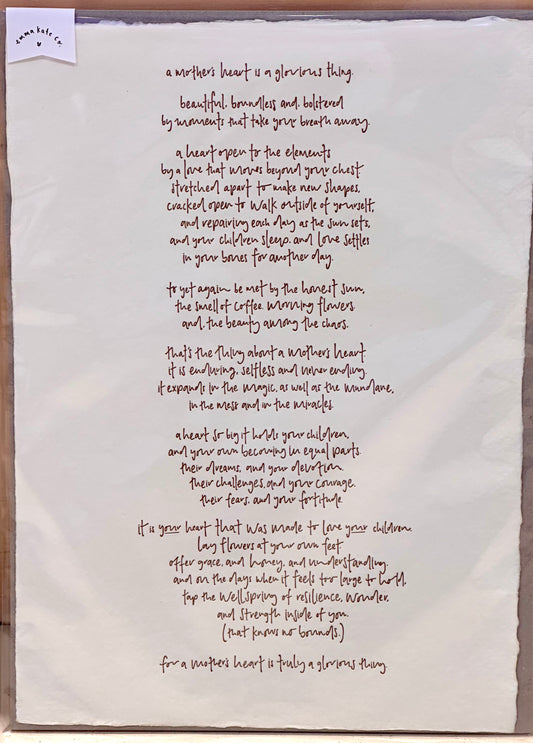 emma kate co.
a mother's heart is a glorious thing.
beautiful, boundless and, bolstered
by moments that take your breath away.
a heart open to the elements
by a love that moves beyond your chest
stretched apart to make new shapes,
cracked open to walk outside of yourself,
and repairing each day as the sun sets,
and your children sleep, and love settles
in your bones for another day.
to yet again be met by the honest sun,
the smell of coffee, morning flowers
and, the beauty among the chaos.
that's the thing about a mother's heart
it is enduring, selfless and never ending.
it expands in the magic, as well as the mundane,
in the mess and in the miracles.
a heart so big it holds your children,
and your own becoming in equal parts.
their dreams, and your devotion.
their challenges, and your courage.
their fears, and your fortitude
it is your heart that was made to love your children.
lay flowers at your own feet
offer grace, and honey, and understanding.
and on the days when it feels too large to hold,
tap the wellspring of resilience, wonder,
and strength inside of you.
(that knows no bounds.)
for a mother's heart is truly a glorious thing.